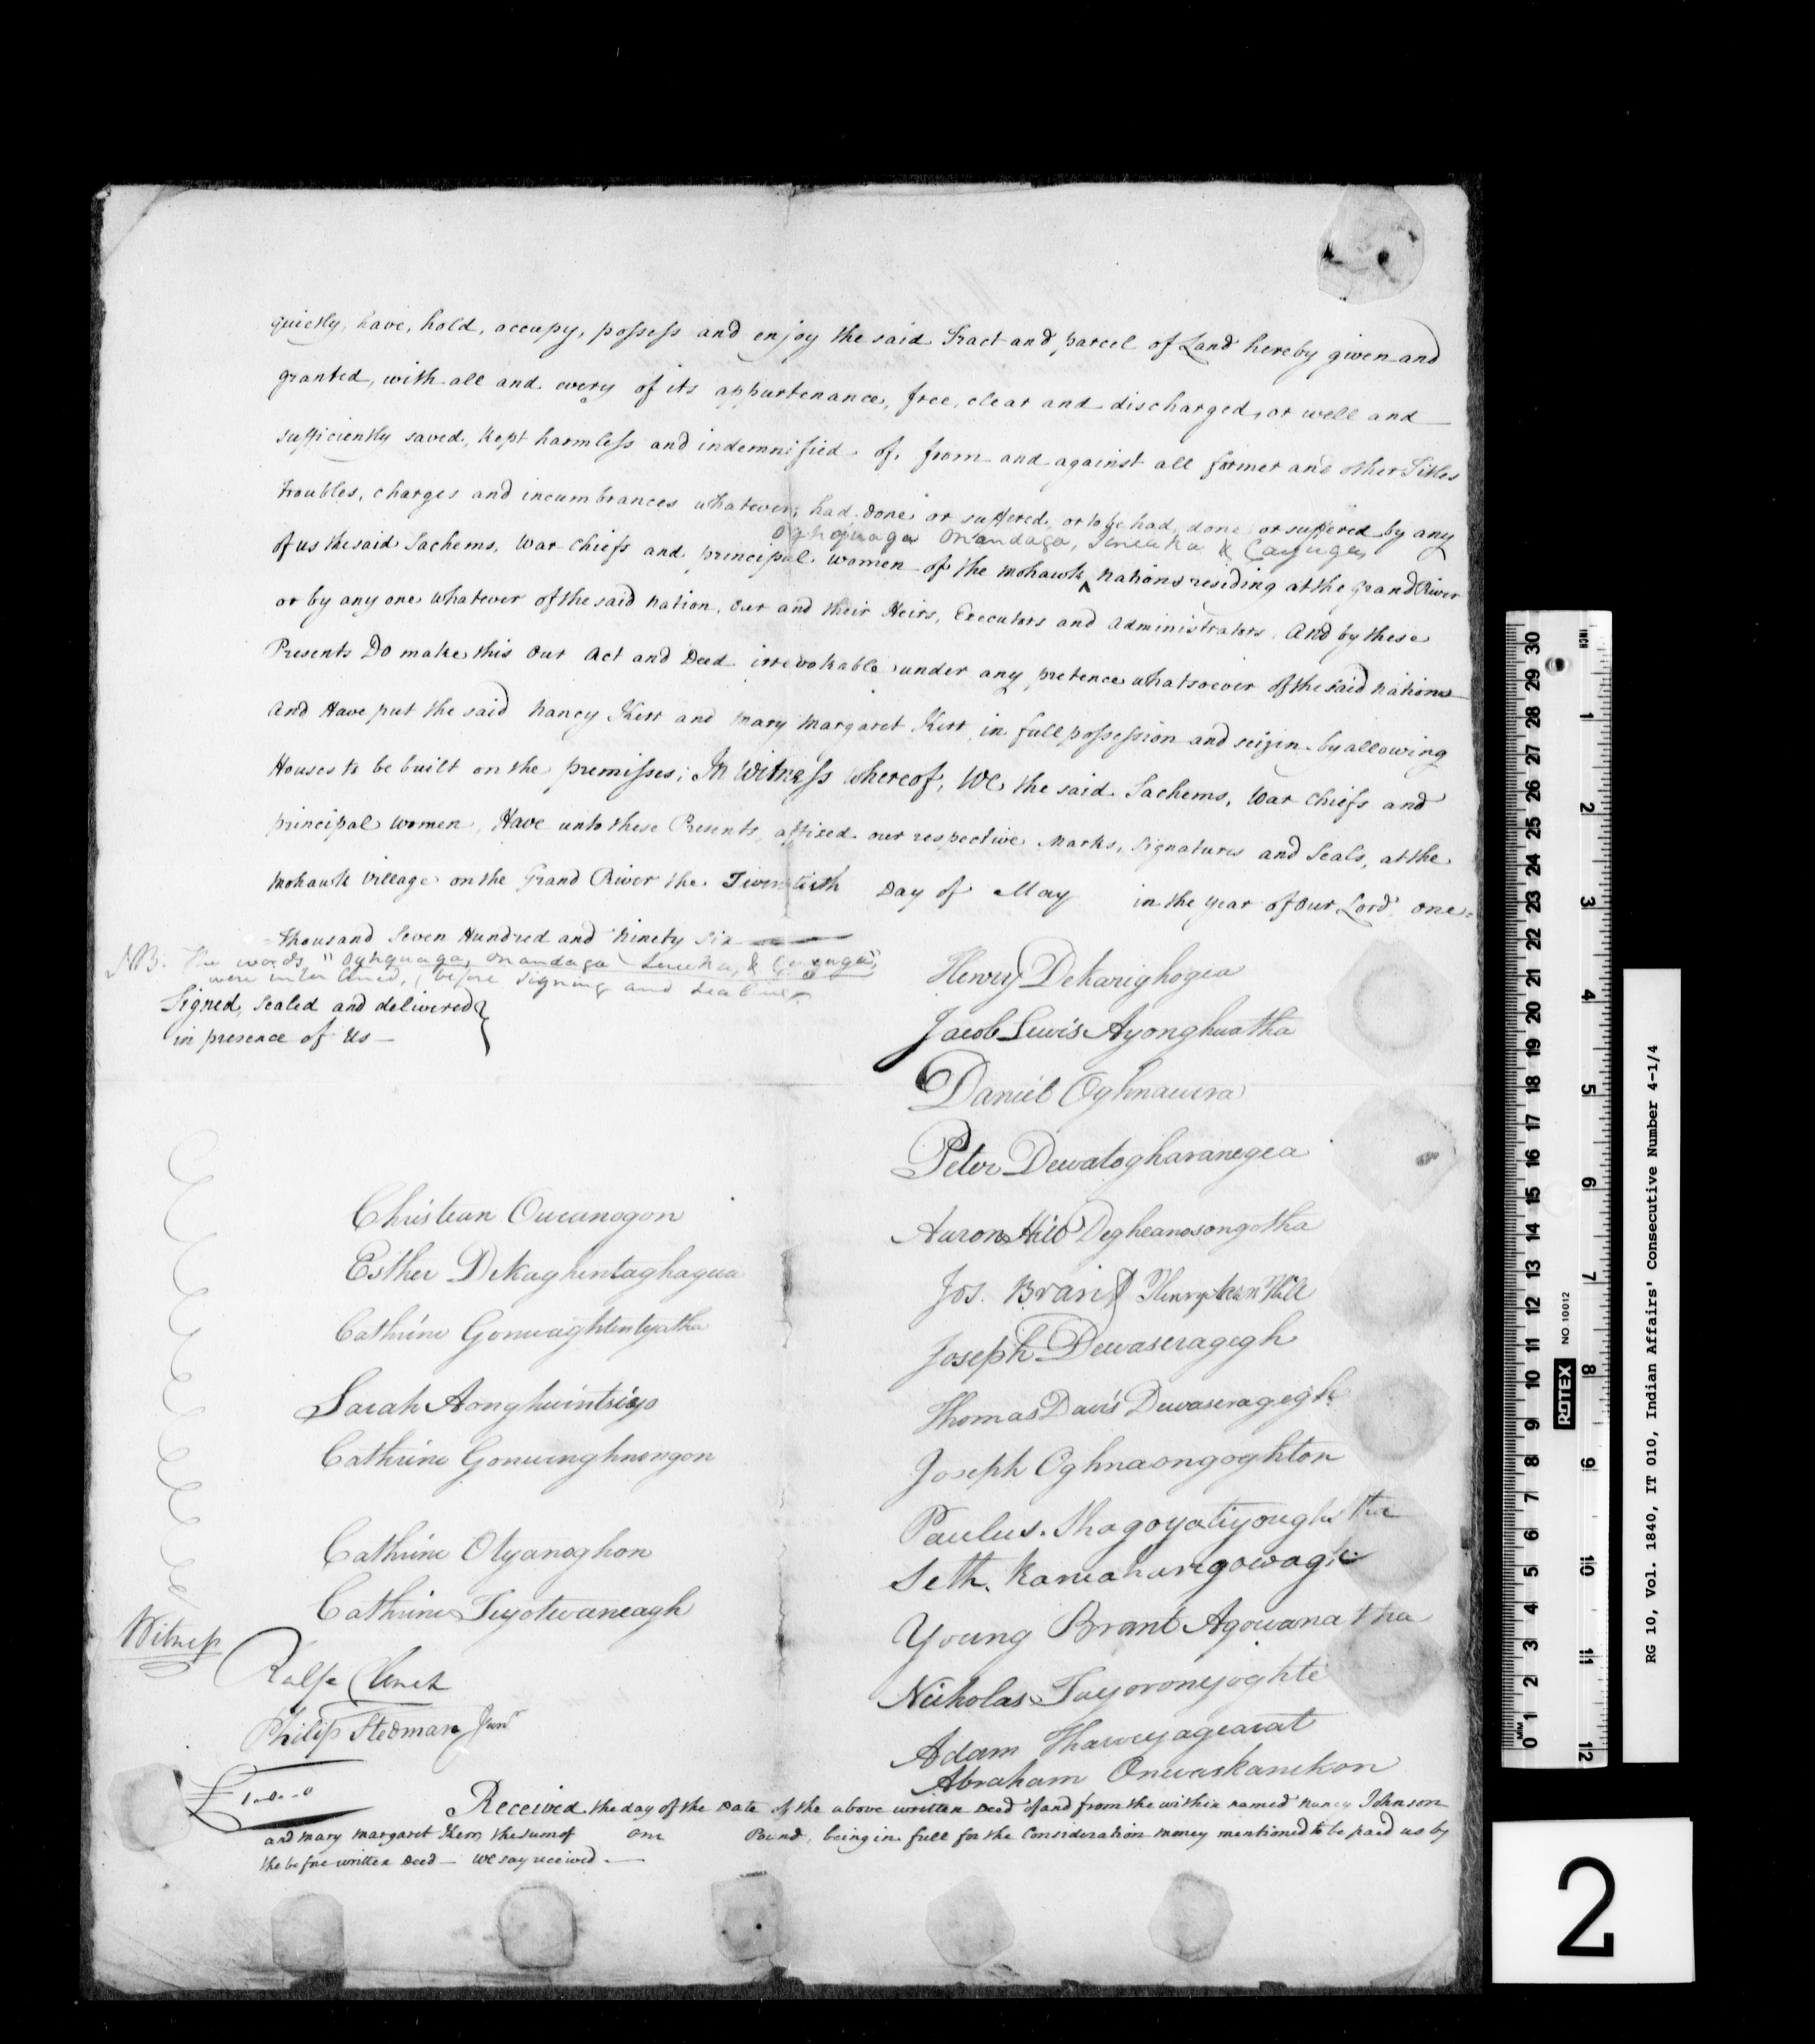 quietly, have, hold, occupy, possess and enjoy the said Tract and parcel of Land hereby given and
granted, with all and every of its appurtenance, free, clear and discharged, or well and
sufficiently saved, kept harmless and indemnified of, from and against all former and other Titles
troubles, charges and incumbrances whatever; had done or suffered, or to be had, done or suffered by any
Oghquaga Onandaga, Seneka & Cayuga,
of us the said Sachems, War chiefs and principal women of the mohawk ^ nations residing at the Grand River
or by any one whatever of the said nation, our and their Heirs, Executors and Administrators. And by these
Presents Do make this our Act and Deed irrevokable under any pretence whatsoever of the said nations
And Have put the said Nancy Kerr and Mary Margaret Kerr, in full possession and seizin by allowing
Houses to be built on the premisses; In Witness whereof, We the said Sachems, War chiefs and
principal women, Have unto these Presents, affixed our respective Marks, Signatures and Seals, at the
Mohawk Village on the Grand River the Twentieth Day of May in the year of Our Lord one=
=thousand Seven Hundred and Ninety Six
NB. The words "Oghquaga, Onandaga Seneka, & Cayuga",
were inter lined, before signing and sealing
Signed, Sealed and delivered
in presence of Us —
Henry Dekarighogea
Jacob Lewis Ayonghwatha
Daniel Oghnawera
Peter Dewatogharanegea
Aaron Hill Degheanosongotha
Jos. Brant Henry Aaron Hill
Joseph Dewaseragegh
Thomas Davis Dewaseragegh
Joseph Oghnaongoghton
Paulus. Shagoyatiyoughwtha
Seth. Kanaharegowagh
Young Brant Agowanatha
Nicholas Tuyoronyoghte
Adam Thaweyagearat
Abraham Onwaskanekon
Christean Oucanogon
Esther Dekaghentaghagua
Cathrine Gonwaghtenteyatha
Sarah Aonghwintsiyo
Cathrine Gonwenghnongon
Cathrine Otyanoghon
Cathrine Teyotwaneagh
Witness
Ralfe Clench
Philip Stedman Junr
£1..0..0
Received the day of the Date of the above written Deed of and from the within named Nancy Johnson
and Mary Margaret Kerr, the sum of One Pound, being in full for the Consideration money mentioned to be paid us by
the before written Deed — We say received —
RG 10, Vol. 1840, IT 010, Indian Affairs' Consecutive Number 4-1/4
INCH
1 2 3 4 5 6 7 8 9 10 11 12
MM
0 1 2 3 4 5 6 7 8 9 10 11 12 13 14 15 16 17 18 19 20 21 22 23 24 25 26 27 28 29 30
ROTEX NO 10012
2